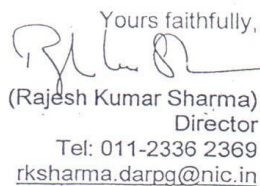 Yours faithfully,
(Rajesh Kumar Sharma)
Director
Tel: 011-2336 2369
rksharma.darpg@nic.in